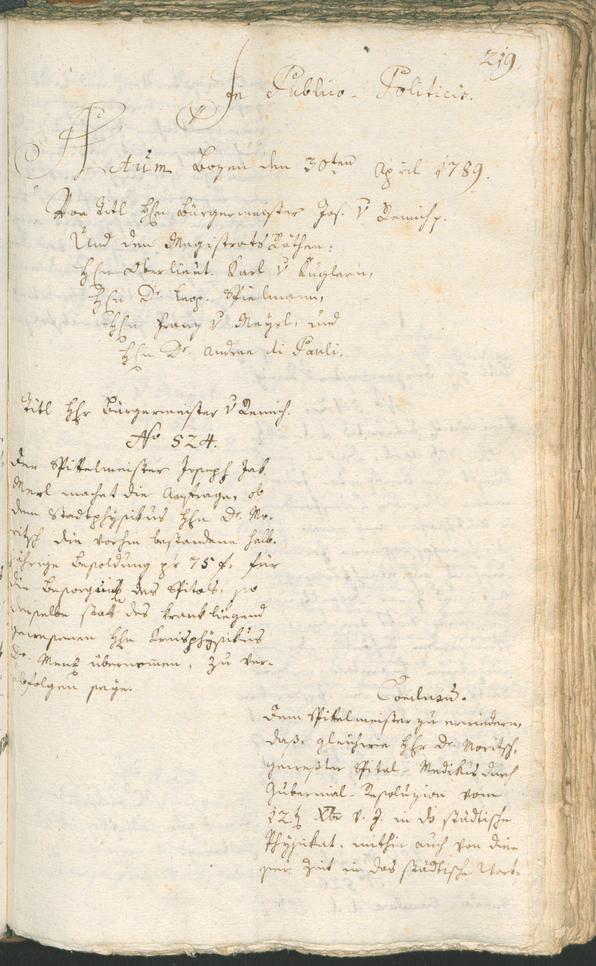 219.
In Publico-Politicis.
Actum Bozen den 30ten April 1789.
Vor Titl Hhn Bürgermeister Jos. v Remich p.
Und den Magistrats Räthen:
Hhn Oberlieut. Karl v Kuglern,
Hhn Dr. Leop. Spielmann,
Hhn Franz v Mayrl, und
Hhn Dr. Andree di Pauli.
Titl Hhr Bürgermeister v Remich.
No 524.
Der Spittelmeister Joseph Jak
Merl machet die Anfrage, ob
dem Stadtphysikus Hhn Dr. Mo-
ritsch die vorhin bestandene halb-
jährige Besoldung pr 75 f. für
die Besorgung des Spitals, so
derselbe statt des krank liegend
gewesenen Hhn Kreisphysikus
Dr. Menz übernommen, zu ver-
abfolgen seye.
Conclusum.
Dem Spitelmeister zu erwiedern,
daß, gleichwie Hhr Dr. Moritsch,
gewester Spital-Medikus durch
Gubernial-Resoluzion vom
12t Xber v. J. in das städtische
Physikat, mithin auch von die-
ser Zeit in das städtische Wart-